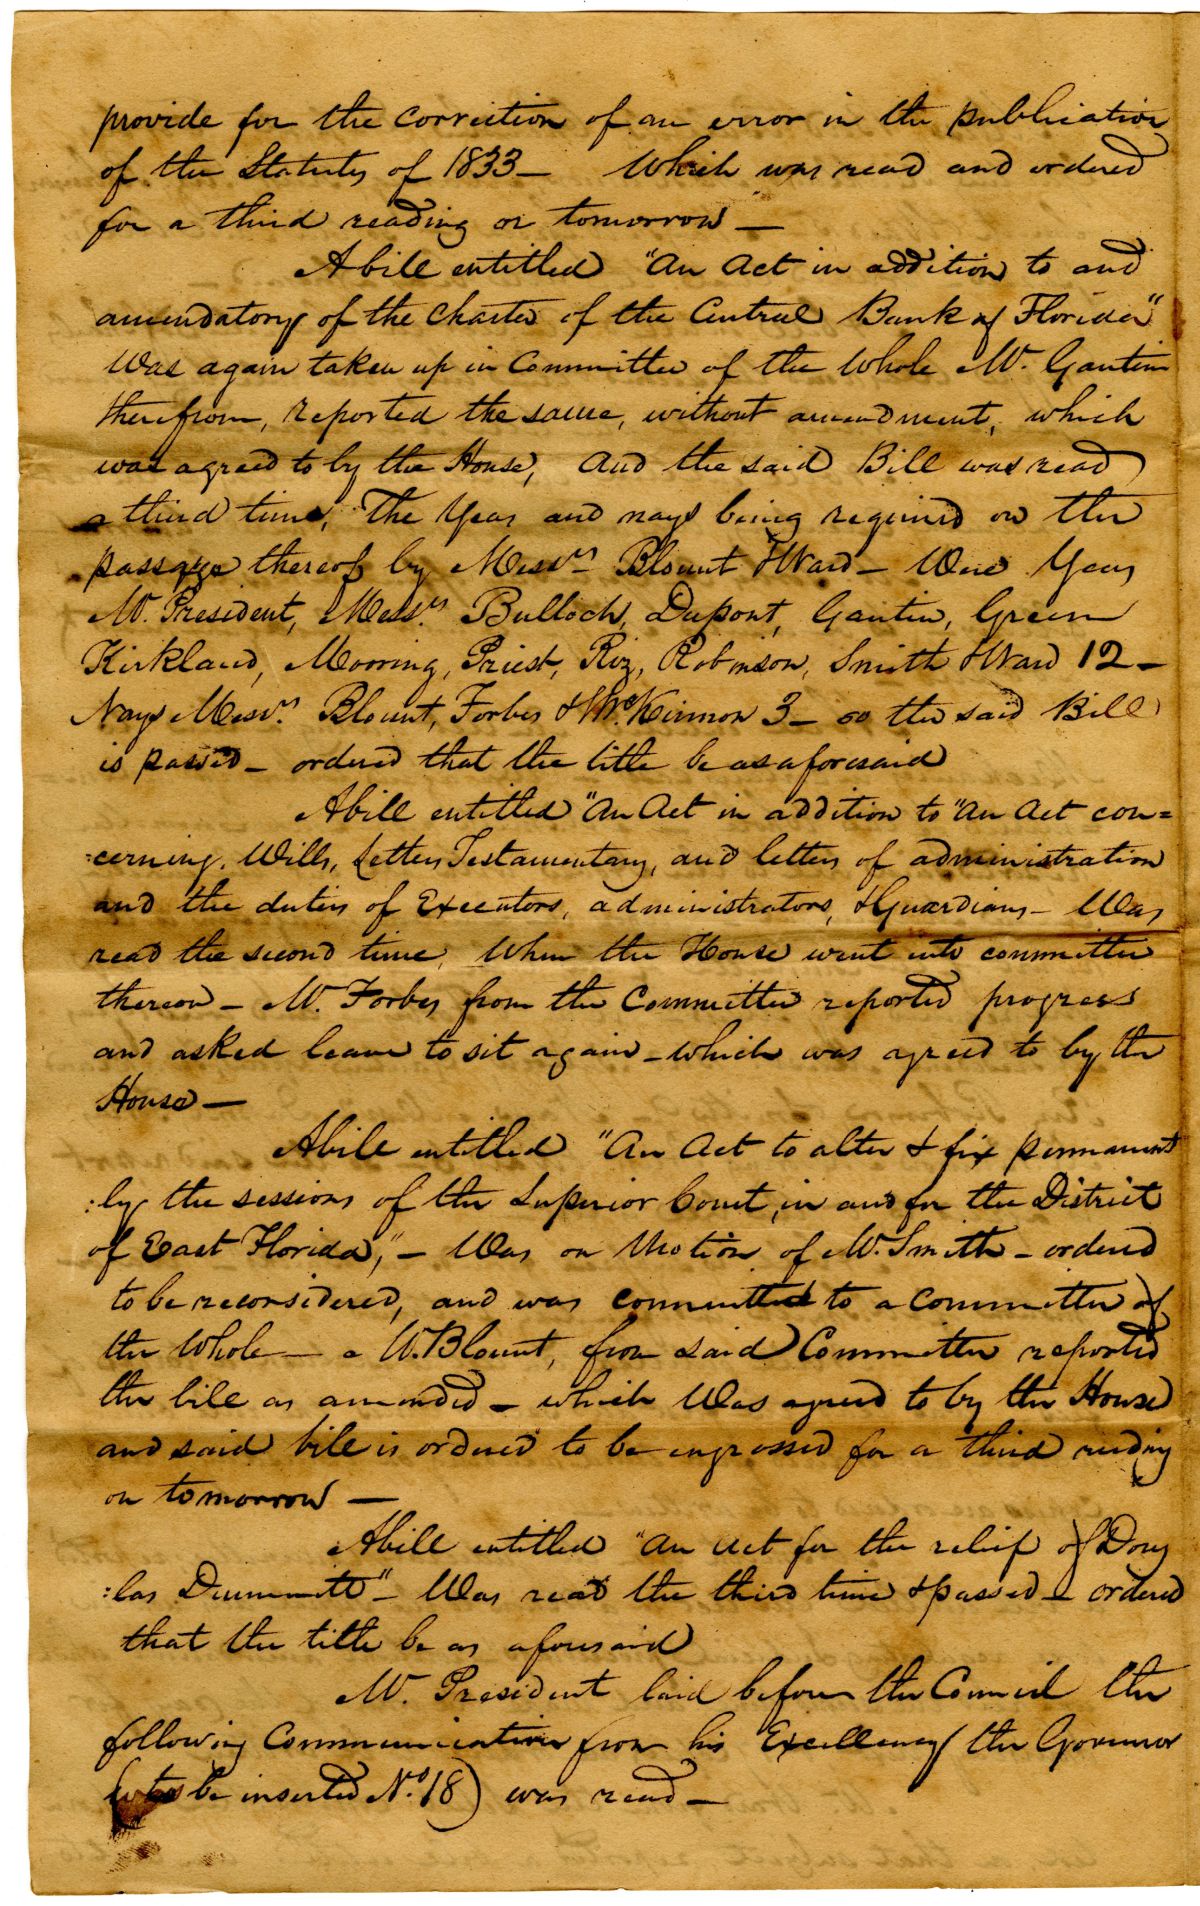 provide for the correction of an error in the publication
of the Statutes of 1833 — Which was read and ordered
for a third reading on tomorrow —
A bill entitled "An Act in addition to and
amendatory of the Charter of the Central Bank of Florida"
Was again taken up in Committee of the Whole Mr. Gautier
therefrom, reported the same, without amendment, which
was agreed to by the House, And the said Bill was read
a third time, The Yeas and nays being required on the
passage thereof by Messrs Blount & Ward — Were Yeas
Mr. President, Messrs Bulloch, Dupont, Gautier, Green
Kirkland, Mooring, Priest, Riz, Robinson, Smith & Ward 12 —
Nays Messrs. Blount, Forbes & McKinnon 3 — so the said Bill
is passed — ordered that the title be as aforesaid
A bill entitled "An Act in addition to "An Act con=
=cerning. Wills, Letters Testamentary, and letters of administration
and the duties of Executors, administrators, & Guardians — Was
read the second time, When the House went into committee
thereon — Mr. Forbes from the Committee reported progress
and asked leave to sit again — which was agreed to by the
House —
A bill entitled "An Act to alter & fix permanent
:ly the sessions of the Superior Court, in and for the District
of East Florida," — Was on Motion of Mr. Smith — ordered
to be reconsidered, and was committed to a Committee of
the Whole — Mr. Blount, from said Committee reported
the bill as amended — which Was agreed to by the House
and said bill is ordered to be engrossed for a third reading
on tomorrow —
A bill entitled "An Act for the relief of Doug
:las Dummett" — Was read the third time & passed — ordered
that the title be as aforesaid
Mr. President laid before the Council the
following Communication from his Excellency the Governor
be inserted No. 18) was read —